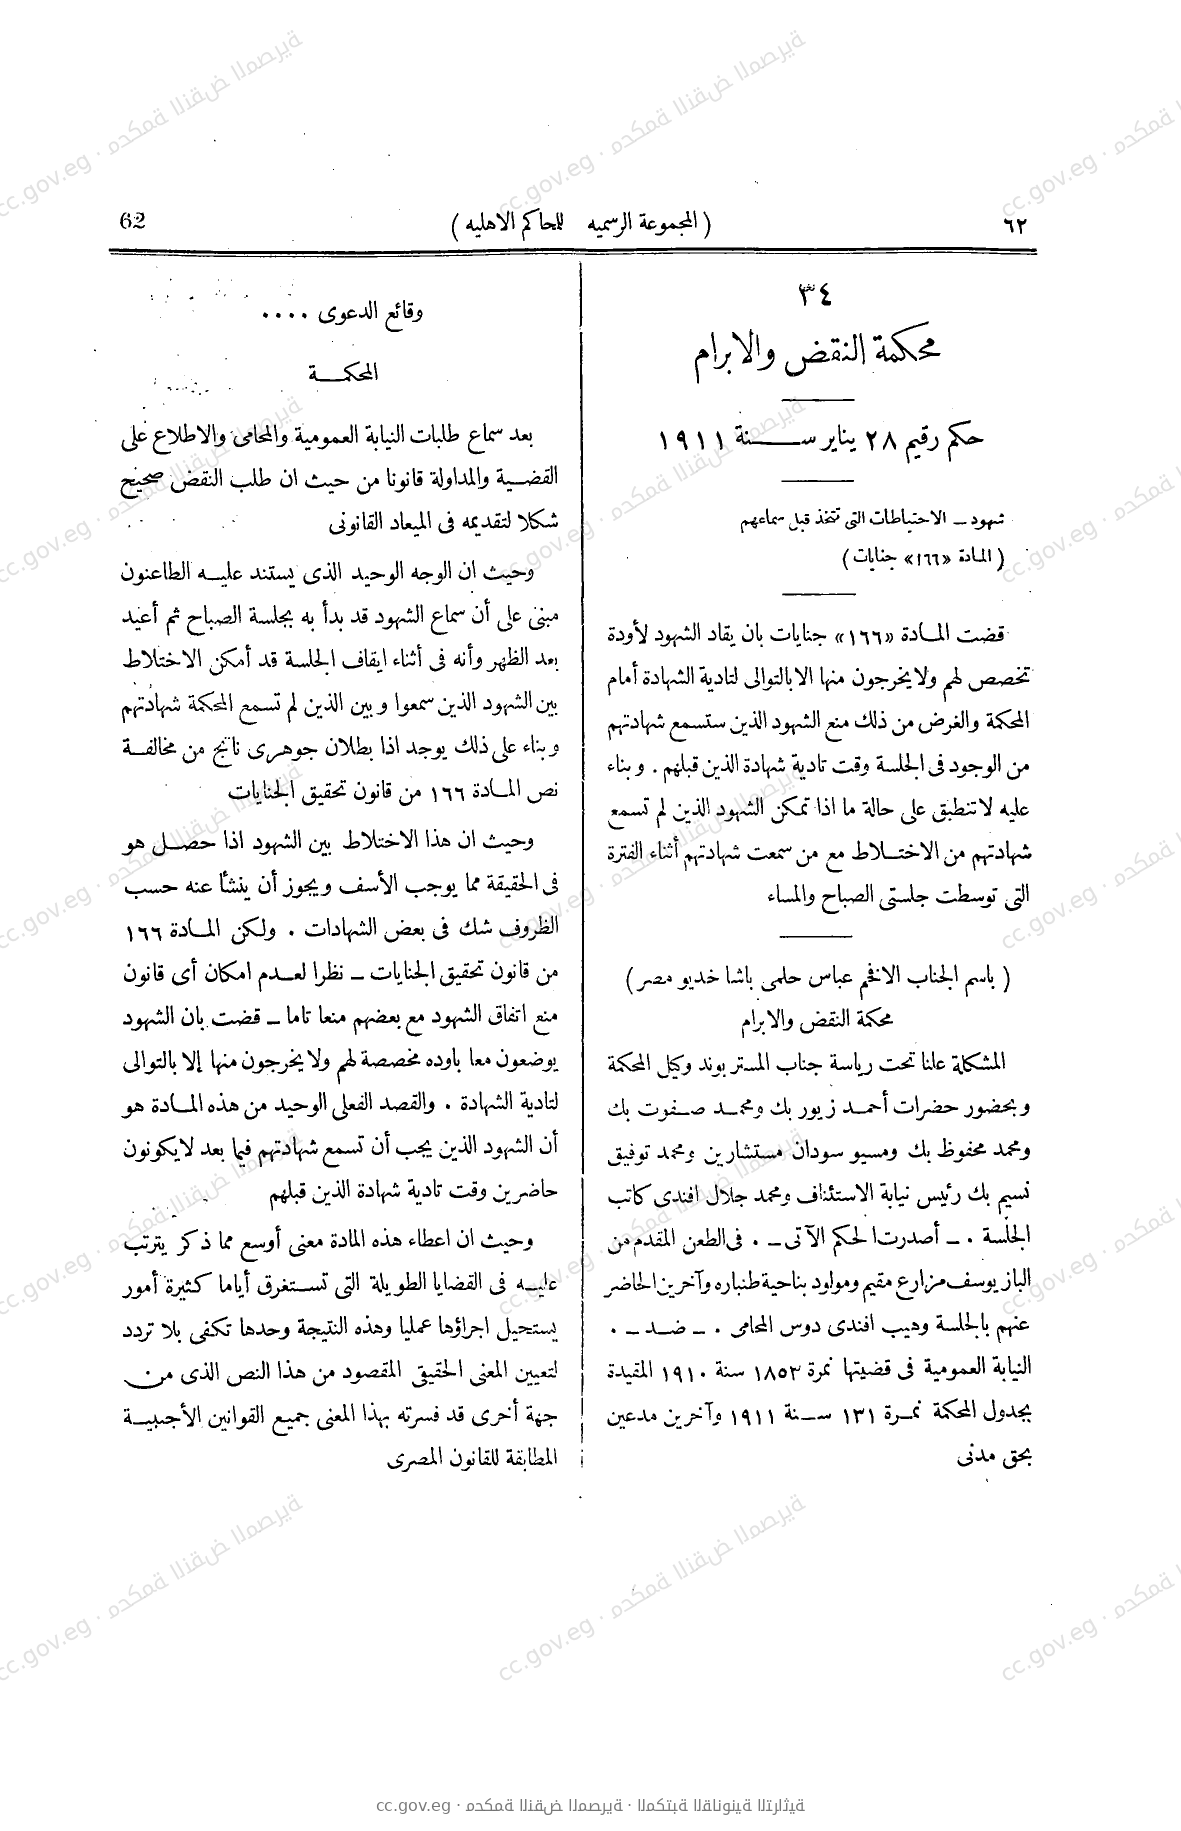 ٦٢
( المجموعة الرسميه للمحاكم الاهليه )
62
٣٤
محكمة النقض والابرام
حكم رقيم ٢٨ يناير ســـنة ١٩١١
شهود – الاحتياطات التى تتخذ قبل سماعهم
( المادة «١٦٦» جنايات )
قضت المادة «١٦٦» جنايات بان يقاد الشهود لأودة
تخصص لهم ولا يخرجون منها الا بالتوالى لتادية الشهادة أمام
المحكمة والغرض من ذلك منع الشهود الذين ستسمع شهادتهم
من الوجود فى الجلسة وقت تادية شهادة الذين قبلهم . وبناء
عليه لا تنطبق على حالة ما اذا تمكن الشهود الذين لم تسمع
شهادتهم من الاختـلاط مع من سمعت شهادتهم أثناء الفترة
التى توسطت جلستى الصباح والمساء
( باسم الجناب الافخم عباس حلمى باشا خديو مصر )
محكمة النقض والابرام
المشكلة علنا تحت رياسة جناب المستر بوند وكيل المحكمة
وبحضور حضرات أحمـد زيور بك ومحمـد صـفوت بك
ومحمد محفوظ بك ومسيو سودان مستشارين ومحمد توفيق
نسيم بك رئيس نيابة الاستئناف ومحمد جلال افندى كاتب
الجلسة . – أصدرت الحكم الآتى – . فى الطعن المقدم من
الباز يوسف مزارع مقيم ومولود بناحية طنباره وآخرين الحاضر
عنهم بالجلسة وهيب افندى دوس المحامى . – ضـد – .
النيابة العمومية فى قضيتها نمرة ١٨٥٣ سنة ١٩١٠ المقيدة
بجدول المحكمة نمـرة ١٣١ سـنة ١٩١١ وآخرين مدعين
بحق مدنى
وقائع الدعوى ....
المحكمـــة
بعد سماع طلبات النيابة العمومية والمحامى والاطلاع على
القضـية والمداولة قانونا من حيث ان طلب النقض صحيح
شكلا لتقديمه فى الميعاد القانونى
وحيث ان الوجه الوحيد الذى يستند عليـه الطاعنون
مبنى على أن سماع الشهود قد بدأ به بجلسة الصباح ثم أعيد
بعد الظهر وأنه فى أثناء ايقاف الجلسة قد أمكن الاختلاط
بين الشهود الذين سمعوا وبين الذين لم تسمع المحكمة شهادتهم
وبناء على ذلك يوجد اذا بطلان جوهرى ناتج من مخالفـة
نص المـادة ١٦٦ من قانون تحقيق الجنايات
وحيث ان هذا الاختلاط بين الشهود اذا حصـل هو
فى الحقيقة مما يوجب الأسف ويجوز أن ينشأ عنه حسب
الظروف شك فى بعض الشهادات . ولكن المـادة ١٦٦
من قانون تحقيق الجنايات – نظرا لعـدم امكان أى قانون
منع اتفاق الشهود مع بعضهم منعا تاما – قضت بان الشهود
يوضعون معا باوده مخصصة لهم ولا يخرجون منها إلا بالتوالى
لتادية الشهادة . والقصد الفعلى الوحيد من هذه المـادة هو
أن الشهود الذين يجب أن تسمع شهادتهم فيما بعد لا يكونون
حاضرين وقت تادية شهادة الذين قبلهم
وحيث ان اعطاء هذه المادة معنى أوسع مما ذكر يترتب
عليـه فى القضايا الطويلة التى تسـتغرق أياما كثيرة أمور
يستحيل اجراؤها عمليا وهذه النتيجة وحدها تكفى بلا تردد
لتعيين المعنى الحقيقى المقصود من هذا النص الذى من
جهة أخرى قد فسرته بهذا المعنى جميع القوانين الأجنبيـة
المطابقة للقانون المصرى
cc.gov.eg · محكمة النقض المصرية · المكتبة القانونية التراثية